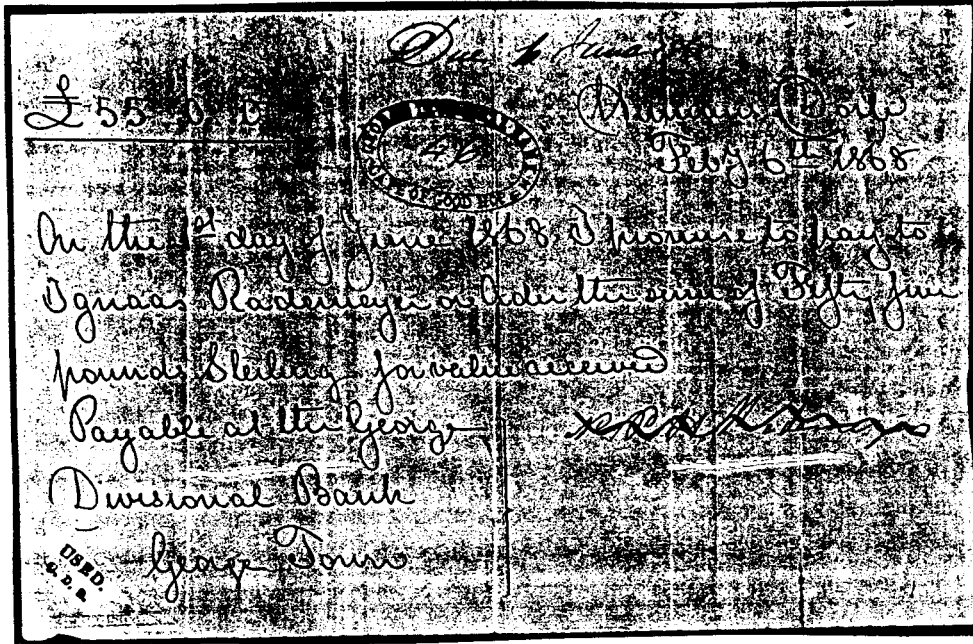 Due 4 June
£55.0.0
Feby 6th 1868
On the 1st day of June 1868 I promise to pay to
Ignaas Rademeyer or Order the sum of Fifty five
pounds Sterling for value received
Payable at the George
Divisional Bank
George Town
CAPE OF GOOD HOPE
USED.
G. D. B.